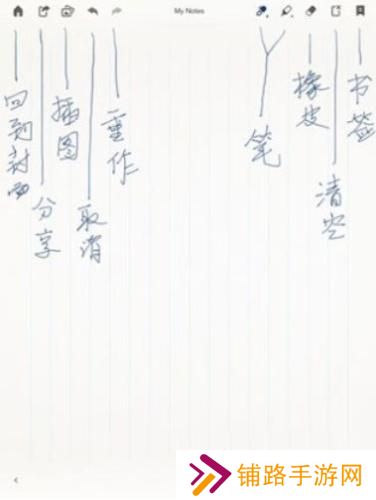 My Notes
回到封面
分享
插图
取消
重作
笔
橡皮
清空
书签
铺路手游网